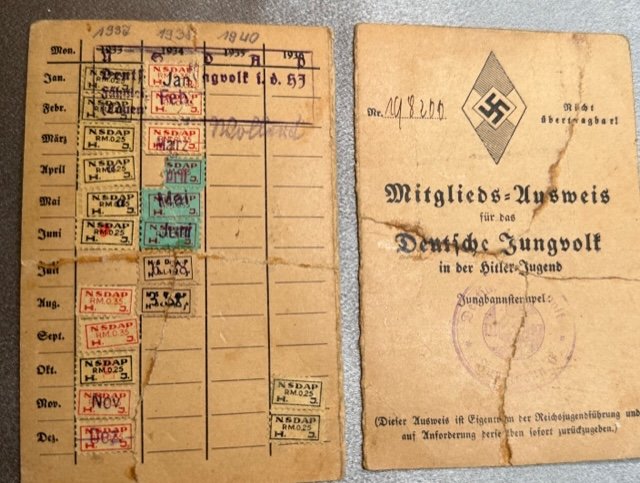 1937 1938 1940
Mon. 1933 1934 1935 1936
N S D A P
Jan. NSDAP Jan. Jungvolk i. d. HJ
Febr. Feb.
März NSDAP RM.0.25 H. J. NSDAP März H. J.
April NSDAP RM.0.25 H. J. NSDAP
Mai NSDAP H. J. NSDAP Mai H. J.
Juni NSDAP RM.0.25 H. J. NSDAP Juni H. J.
Juli NSDAP
Aug. NSDAP RM.0.35 H. J. NSDAP H. J.
Sept. NSDAP RM.0.35 H. J.
Okt. NSDAP RM.0.25 H. J. NSDAP RM.0.25 H. J.
Nov. NSDAP Nov. H. J. NSDAP RM.0.25 H. J.
Dez. NSDAP Dez. H. J.
Nr. 198200
Nicht
übertragbar!
Mitglieds=Ausweis
für das
Deutsche Jungvolk
in der Hitler=Jugend
Jungbannstempel:
(Dieser Ausweis ist Eigentum der Reichsjugendführung und
auf Anforderung derselben sofort zurückzugeben.)